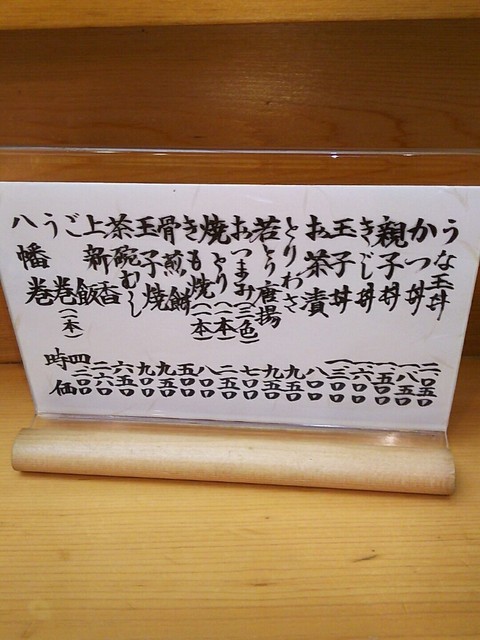 うな玉丼 二〇五〇
かつ丼 一八五〇
親子丼
きじ丼 一六〇〇
玉子丼 一三〇〇
お茶漬 八〇〇
とりわさ 九五〇
若とり唐揚 九五〇
おつまみ(三色) 七〇〇
焼とり(一本) 二五〇
きも焼(一本) 八〇〇
骨煎餅 五〇〇
玉子焼 九五〇
茶碗むし 九〇〇
上新香 六五〇
ご飯
う巻(一本)
八幡巻 時価